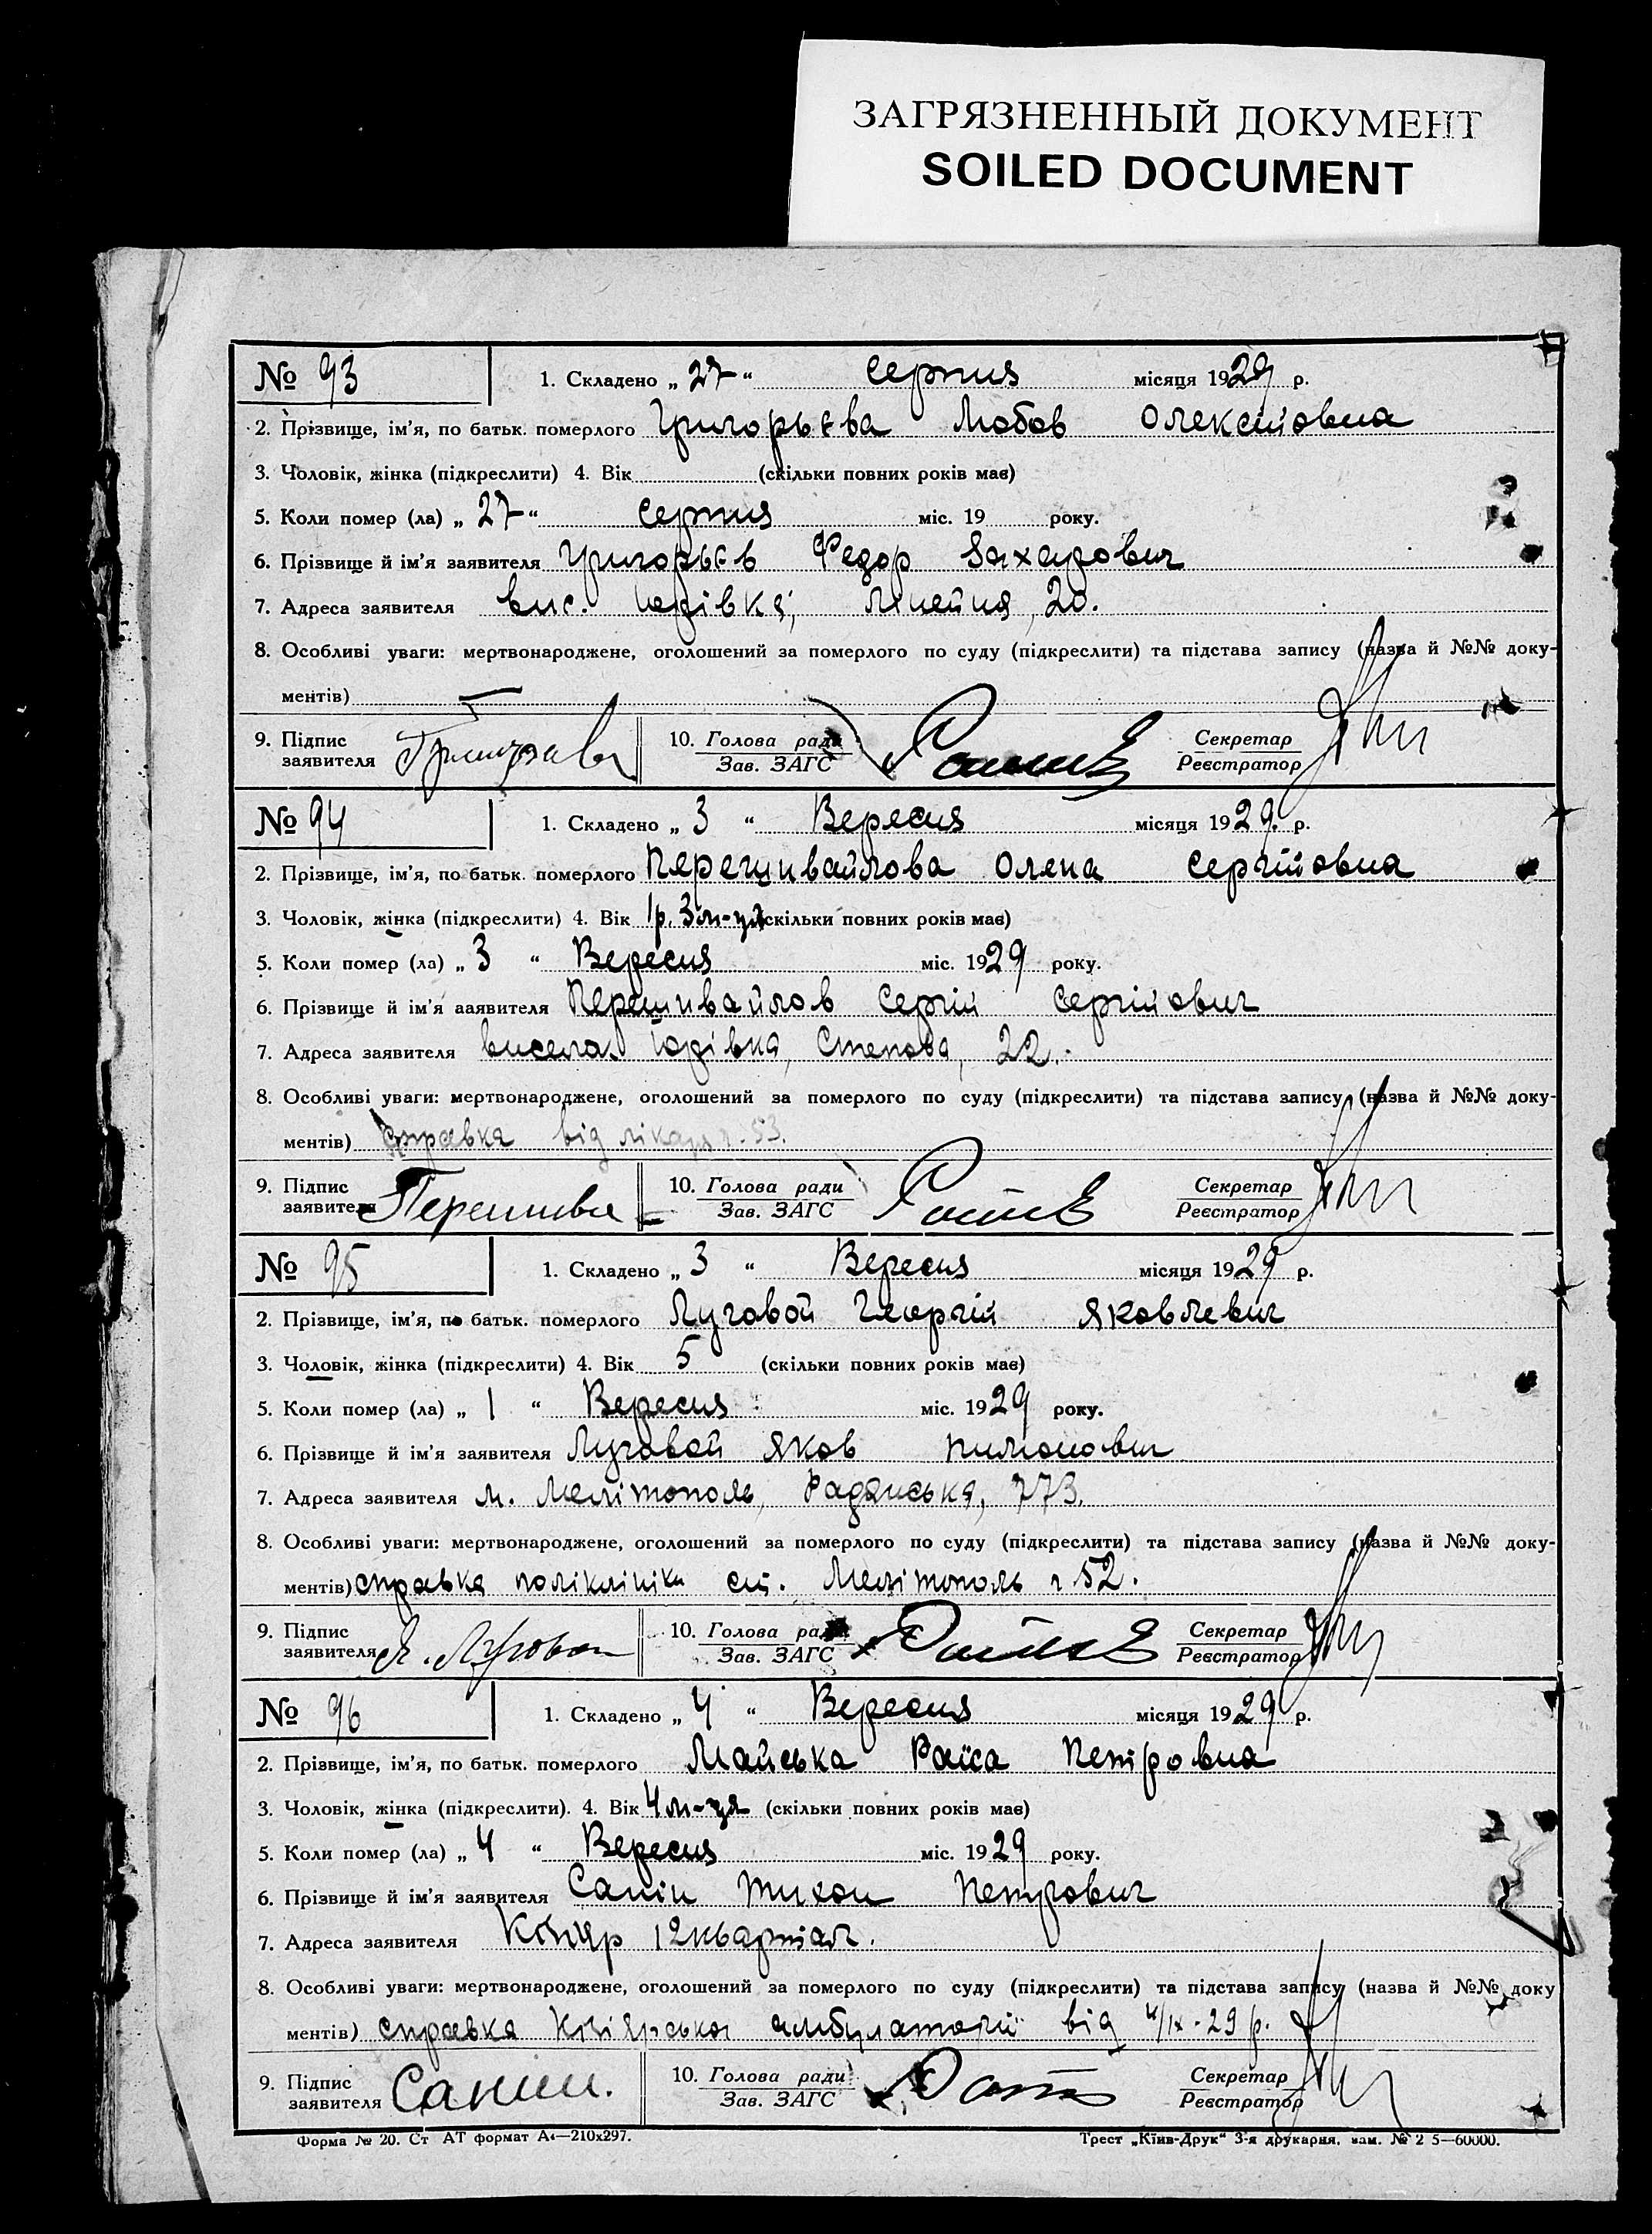 ЗАГРЯЗНЕННЫЙ ДОКУМЕНТ
SOILED DOCUMENT
№ 93
1. Складено „ 27 “ серпня місяця 1929 р.
2. Прізвище, ім'я, по батьк. померлого Григорьєва Любов Олексіювна
3. Чоловік, жінка (підкреслити) 4. Вік (скільки повних років має)
5. Коли помер (ла) „ 27 “ серпня міс. 19 року.
6. Прізвище й ім'я заявителя Григорьєв Федор Захарович
7. Адреса заявителя вис. Юрівка, Лінейна, 20.
8. Особливі уваги: мертвонароджене, оголошений за померлого по суду (підкреслити) та підстава запису (назва й №№ доку-
ментів)
9. Підпис заявителя
10. Голова ради Зав. ЗАГС
Секретар Реєстратор
№ 94
1. Складено „ 3 “ Вересня місяця 1929. р.
2. Прізвище, ім'я, по батьк. померлого Перешивайлова Олена Сергіювна
3. Чоловік, жінка (підкреслити) 4. Вік 1р. 3 м-ця (скільки повних років має)
5. Коли помер (ла) „ 3 “ Вересня міс. 1929 року.
6. Прізвище й ім'я ааявителя Перешивайлов Сергій Сергійович
7. Адреса заявителя висела. Юрівка, Степова, 22.
8. Особливі уваги: мертвонароджене, оголошений за померлого по суду (підкреслити) та підстава запису (назва й №№ доку-
ментів) справка від лікаря ч. 53.
9. Підпис заявителя Перешива
10. Голова ради Зав. ЗАГС
Секретар Реєстратор
№ 95
1. Складено „ 3 “ Вересня місяця 1929 р.
2. Прізвище, ім'я, по батьк. померлого Луговой Георгій Яковлевич
3. Чоловік, жінка (підкреслити) 4. Вік 5 (скільки повних років має)
5. Коли помер (ла) „ 1 “ Вересня міс. 1929 року.
6. Прізвище й ім'я заявителя Луговой Яков Пимонович
7. Адреса заявителя м. Мелітополь, Радянська, 773.
8. Особливі уваги: мертвонароджене, оголошений за померлого по суду (підкреслити) та підстава запису (назва й №№ доку-
ментів) справка поліклініки ст. Мелітополь ч 52.
9. Підпис заявителя Я. Луговой
10. Голова ради Зав. ЗАГС
Секретар Реєстратор
№ 96
1. Складено „ 4 “ Вересня місяця 1929 р.
2. Прізвище, ім'я, по батьк. померлого Майська Раїса Петровна
3. Чоловік, жінка (підкреслити). 4. Вік 4 м-ця (скільки повних років має)
5. Коли помер (ла) „ 4 “ Вересня міс. 1929 року.
6. Прізвище й ім'я заявителя Санін Тихон Петрович
7. Адреса заявителя Кізіяр 12 квартал.
8. Особливі уваги: мертвонароджене, оголошений за померлого по суду (підкреслити) та підстава запису (назва й №№ доку
ментів) справка Кізіярської амбулаторії від 4/IX-29 р.
9. Підпис заявителя Санин.
10. Голова ради Зав. ЗАГС
Секретар Реєстратор
Форма № 20. Ст АТ формат А4—210х297.
Трест „Київ-Друк“ 3-я друкарня, зам. № 2 5—60000.